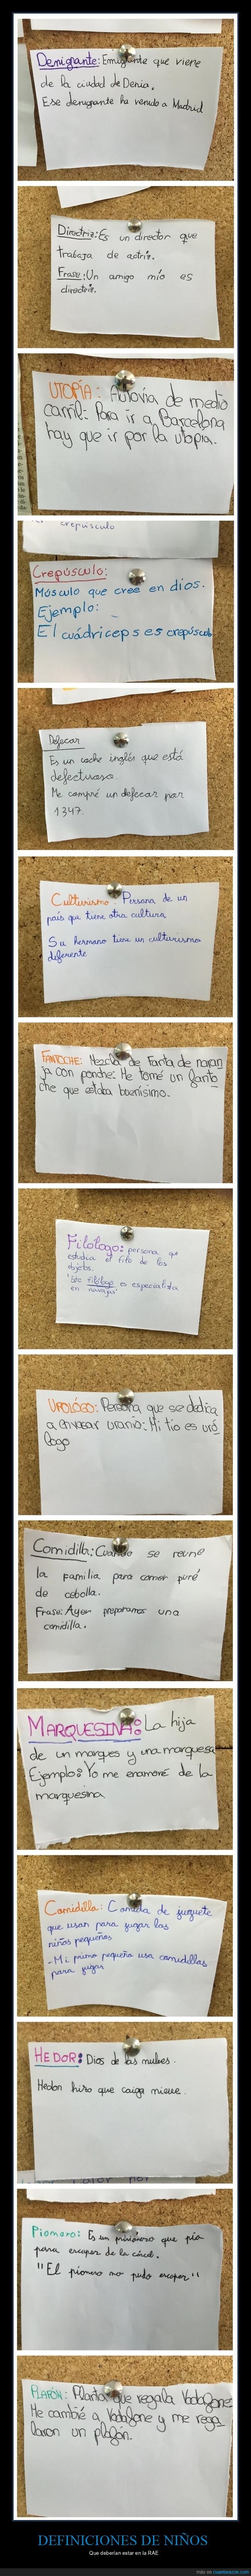 Denigrante: Emigrante que viene
de la ciudad de Denia.
Ese denigrante ha venido a Madrid
Directriz: Es un director que
trabaja de actriz.
Frase: Un amigo mío es
directriz.
UTOPÍA: Autovía de medio
carril: Para ir a Barcelona
hay que ir por la utopia.
crepúsculo
Crepúsculo:
Músculo que cree en dios.
Ejemplo:
El cuádriceps es crepúsculo
Defecar
Es un coche inglés que está
defectuoso.
Me compré un defecar por
1347.
Culturismo: Persona de un
país que tiene otra cultura
Su hermano tiene un culturismo
diferente
FANTOCHE: Mezcla de Fanta de naran
ja con ponche: Me tomé un fanto
che que estaba buenísimo.
Filólogo: persona que
estudia el filo de los
objetos.
"Este filólogo es especialista
en navajas"
UROLÓGO: Persona que se dedica
a buscar uranio: Mi tio es uró
logo
Comidilla: Cuando se reune
la familia para comer puré
de cebolla.
Frase: Ayer preparamos una
comidilla.
MARQUESINA: La hija
de un marques y una marquesa
Ejemplo: Yo me enamoré de la
marquesina.
Comidilla: Comida de juguete
que usan para jugar los
niños pequeños
- Mi primo pequeño usa comidillas
para jugar
HEDOR: Dios de las nubes.
hizo que caiga nieve.
Piomero: Es un prisionero que pía
para escapar de la cárcel.
"El piomero no pudo escapar"
PLAFÓN: Planta que regala Vodafone
Me cambié a Vodafone y me rega
laron un plafón.
DEFINICIONES DE NIÑOS
Que deberían estar en la RAE
más en cuantarazon.com